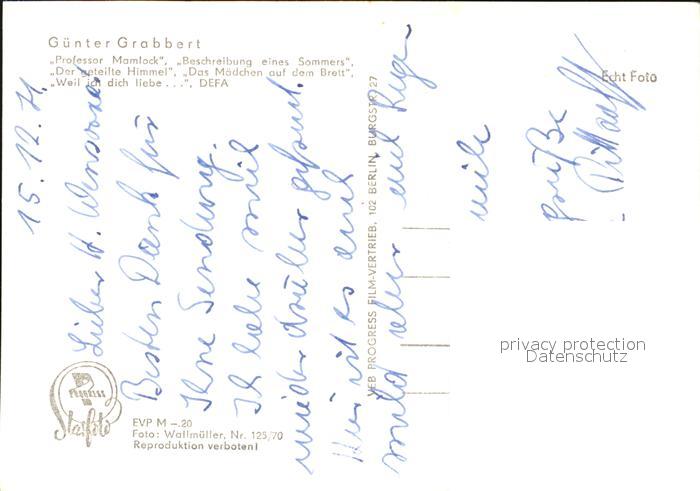 Günter Grabbert
„Professor Mamlock", „Beschreibung eines Sommers",
„Der geteilte Himmel", „Das Mädchen auf dem Brett",
„Weil ich dich liebe . . .", DEFA
Echt Foto
15. 12. 71
Lieber H.
Besten Dank für
Ihre Sendung.
Ich habe mich
wieder darüber gefreut.
Hier ist es auch
mild aber
viele
Grüße
VEB PROGRESS FILM-VERTRIEB, 102 BERLIN, BURGSTR. 27
PROGRESS
Starfoto
EVP M –.20
Foto: Wallmüller, Nr. 125/70
Reproduktion verboten!
privacy protection
Datenschutz